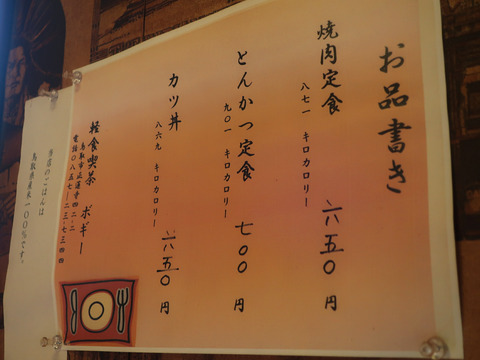 お品書き
焼肉定食 六五〇円
八七一 キロカロリー
とんかつ定食 七〇〇円
九〇一 キロカロリー
カツ丼 六五〇円
八六九 キロカロリー
軽食喫茶 ボギー
電話〇八五七-二三-七三四四
当店のごはんは
鳥取県産米一〇〇%です。